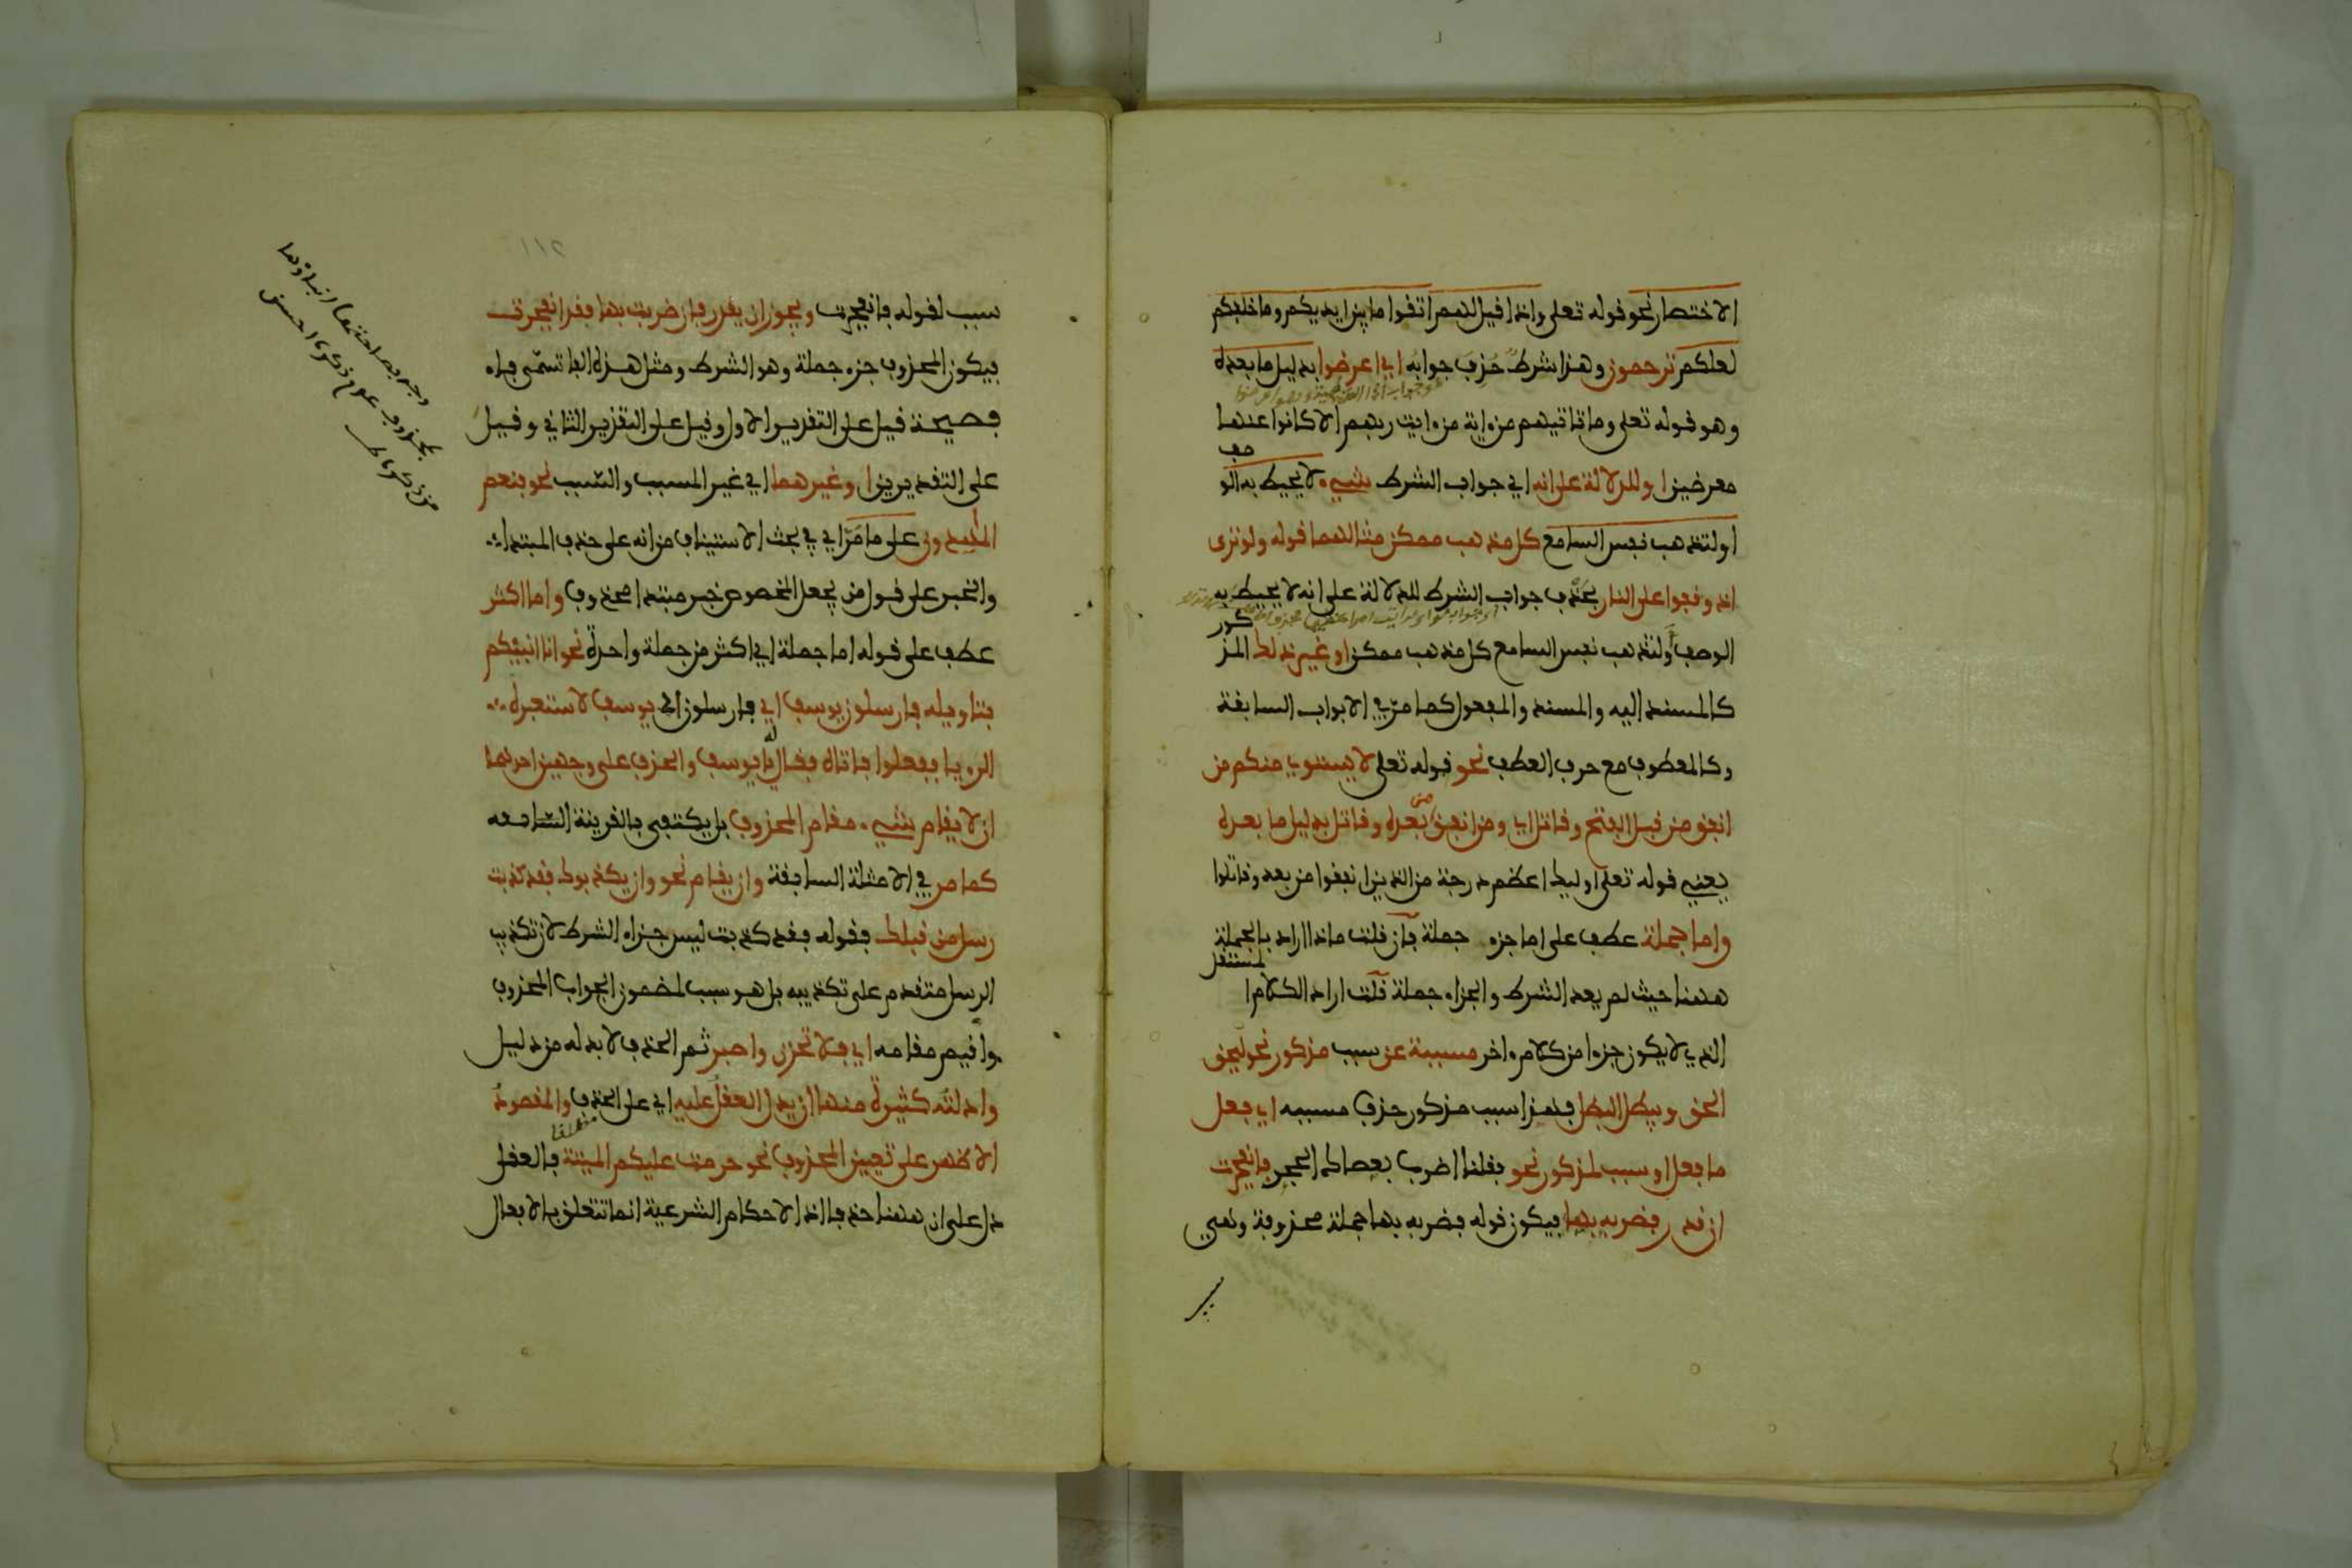 الاختصار نحو قوله تعلى واذا قيل لهم اتقوا ما بين ايديكم وما خلفكم
لعلكم ترحمون وهذا شرط حذف جوابه اي اعرضوا بدليل ما بعده
وهو قوله تعلى وما تاتيهم من ءاية من ءايت ربهم الا كانوا عنها
معرضين او للدلالة على انه اي جواب الشرط شيء لا يحيط به الوصف
او لتذهب نفس السامع كل مذهب ممكن مثالهما قوله ولو ترى
اذ وقفوا على النار بحذف جواب الشرط للدلالة على انه لا يحيط به
الوصف او لتذهب نفس السامع كل مذهب ممكن او غير ذلك المذكور
كالمسند اليه والمسند والمفعول كما مر في الابواب السابقة
وكالمعطوف مع حرف العطف نحو قوله تعلى لا يستوي منكم من
انفق من قبل الفتح وقاتل اي ومن انفق من بعده وقاتل بدليل ما بعده
يعني قوله تعلى اوليك اعظم درجة من الذين انفقوا من بعد وقاتلوا
واما جملة عطف على اما جزء جملة فان قلت ماذا اراد بالجملة
ههنا حيث لم يعد الشرط والجزاء جملة قلت اراد الكلام المستقل
الذي لا يكون جزءا من كلام ءاخر مسببة عن سبب مذكور نحو ليحق
الحق ويبطل البطل فهذا سبب مذكور حذف مسببه اي فعل
ما فعل او سبب لمذكور نحو فقلنا اضرب بعصاك الحجر فانفجرت
ان قدر فضربه بها فيكون قوله فضربه بها جملة محذوفة وهي
سبب لقوله فانفجرت ويجوز ان يقدر فان ضربت بها فقد انفجرت
فيكون المحذوف جزء جملة وهو الشرط ومثل هذه الفا تسمى فاء
فصيحة قيل على التقدير الاول وقيل على التقدير الثاني وقيل
على التقديرين او غيرهما اي غير المسبب والسبب نحو فنعم
المهدون على ما مر اي في بحث الاستيناف من انه على حذف المبتدا
والخبر على قول من يجعل المخصوص خبر مبتدا محذوف واما اكثر
عطف على قوله اما جملة اي اكثر من جملة واحدة نحو انا انبئكم
بتاويله فارسلون يوسف اي فارسلون الى يوسف لاستعبره
الرويا ففعلوا فاتاه فقال له يا يوسف والحذف على وجهين احدهما
ان لا يقام شيء مقام المحذوف بل يكتفى بالقرينة السابقة
كما مر في الامثلة السابقة وان يقام نحو وان يكذبوك فقد كذبت
رسل من قبلك فقوله فقد كذبت ليس جزاء الشرط لان تكذيب
الرسل متقدم على تكذيبه بل هو سبب لمضمون الجواب المحذوف
واقيم مقامه اي فلا تحزن واصبر ثم الحذف لا بد له من دليل
وادلته كثيرة منها ان يدل العقل عليه اي على الحذف والمقصود
الاظهر على تعيين المحذوف نحو حرمت عليكم الميتة فالعقل
دل على ان ههنا حذفا اذ الاحكام الشرعية انما تتعلق بالافعال